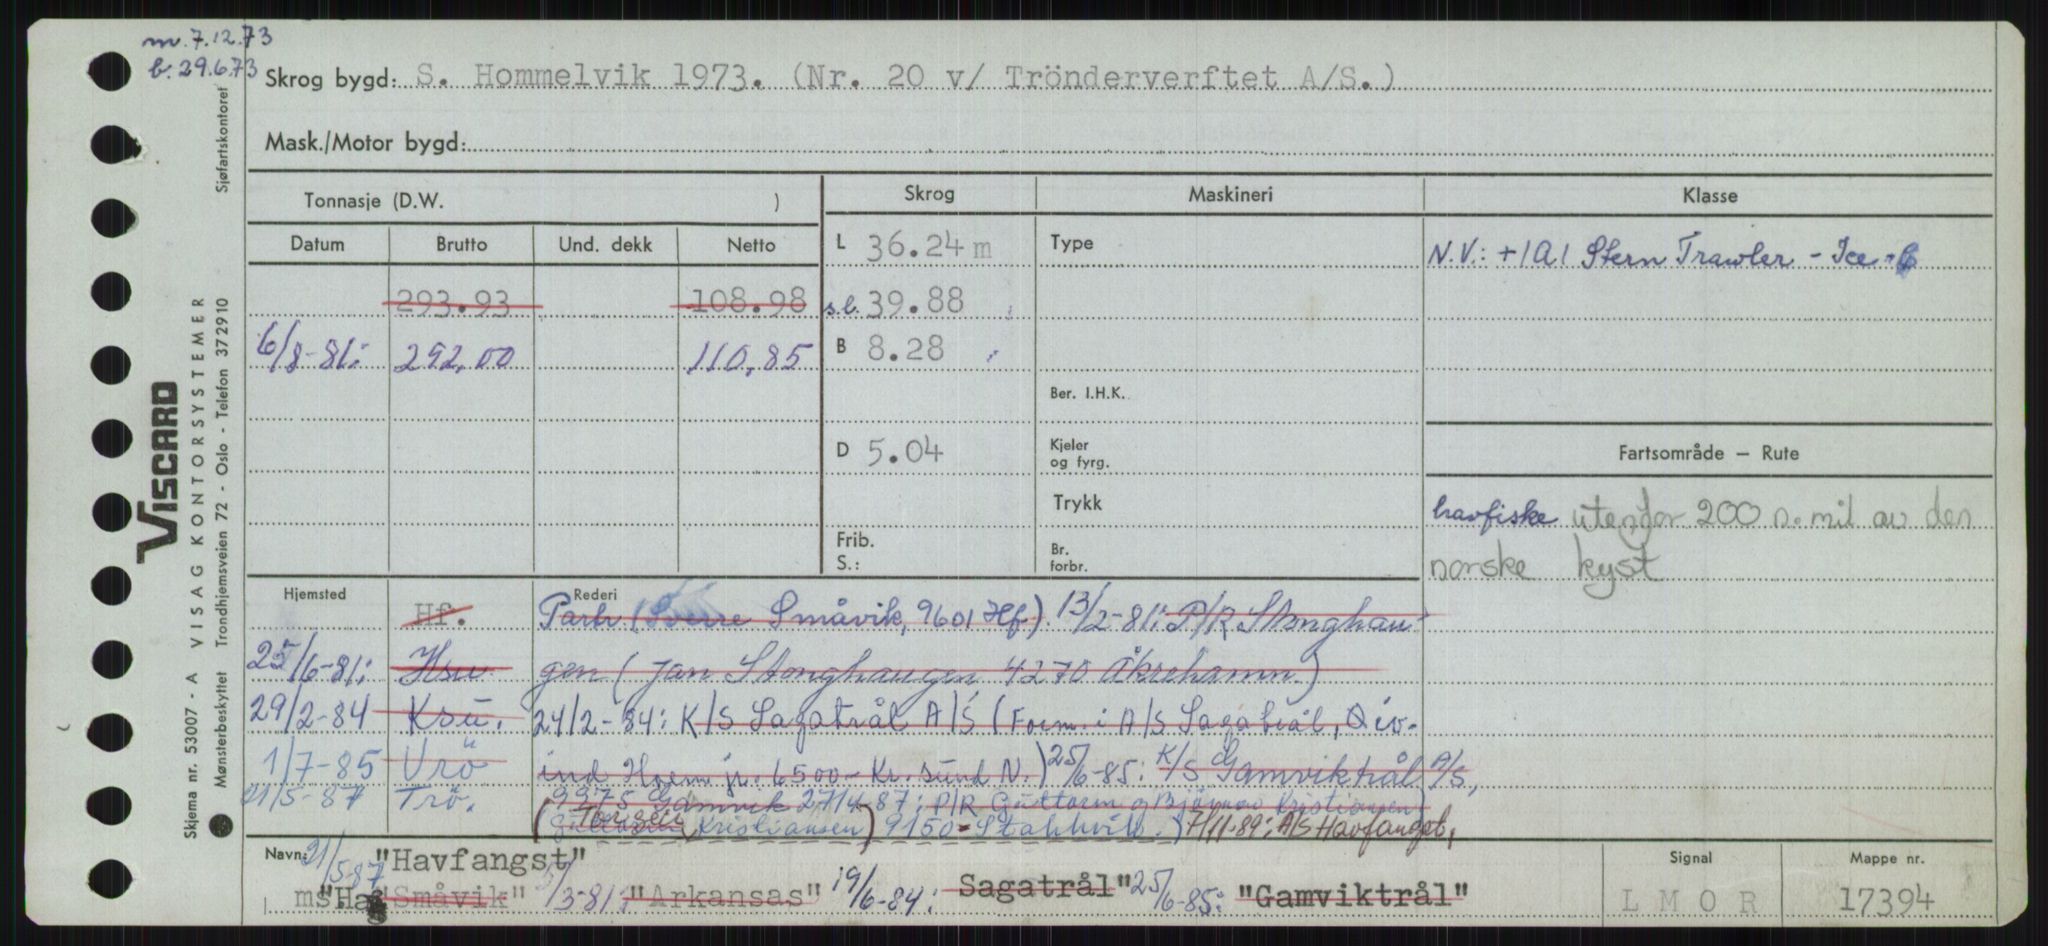 m. 7.12.73
b. 29.6.73
Skrog bygd: S. Hommelvik 1973. (Nr. 20 v/ Trönderverftet A/S.)
Mask./Motor bygd:
Tonnasje (D.W. ) Skrog Maskineri Klasse
Datum Brutto Und. dekk Netto L 36.24 m Type N.V.: +1A1 Stern Trawler - Ice - C
293.93 108.98 s.l. 39.88
6/8-81: 292,00 110,85 B 8.28
Ber. I.H.K.
D 5.04 Kjeler og fyrg. Fartsområde – Rute
Trykk havfiske utenfor 200 n. mil av den
Frib. S.: Br. forbr. norske kyst
Hjemsted Rederi
Hf. Partr (Sverre Småvik, 9601 Hf) 13/2-81: P/R Stonghau-
25/6-81: Hsu. gen (Jan Stonghaugen, 4270 Åkrehamn)
29/2-84 Ksu. 24/2-84: K/S Sagatrål A/S (Form. i A/S Sagatrål, Eiv-
1/7-85 Vrö ind Hoem jr. 6500 - Kr. sund N.) 25/6-85: K/S Gamviktrål A/S,
21/5-87 Trö. (9775 Gamvik 27/4-87: P/R Guttorm og Björnar Kristiansen
( Torgeir Kristiansen) 9150 - Stakkvik.) 7/11-89: A/S Havfangst,
Navn: 21/5-87 "Havfangst"
ms "Ha "Småvik" /3-81: "Arkansas" 19/6-84: Sagatrål" 25/6-85: "Gamviktrål"
Signal LMOR
Mappe nr. 17394
VISCARD
VISAG KONTORSYSTEMER
Skjema nr. 53007 - A
Mønsterbeskyttet Trondhjemsveien 72 - Oslo - Telefon 372910
Sjøfartskontoret